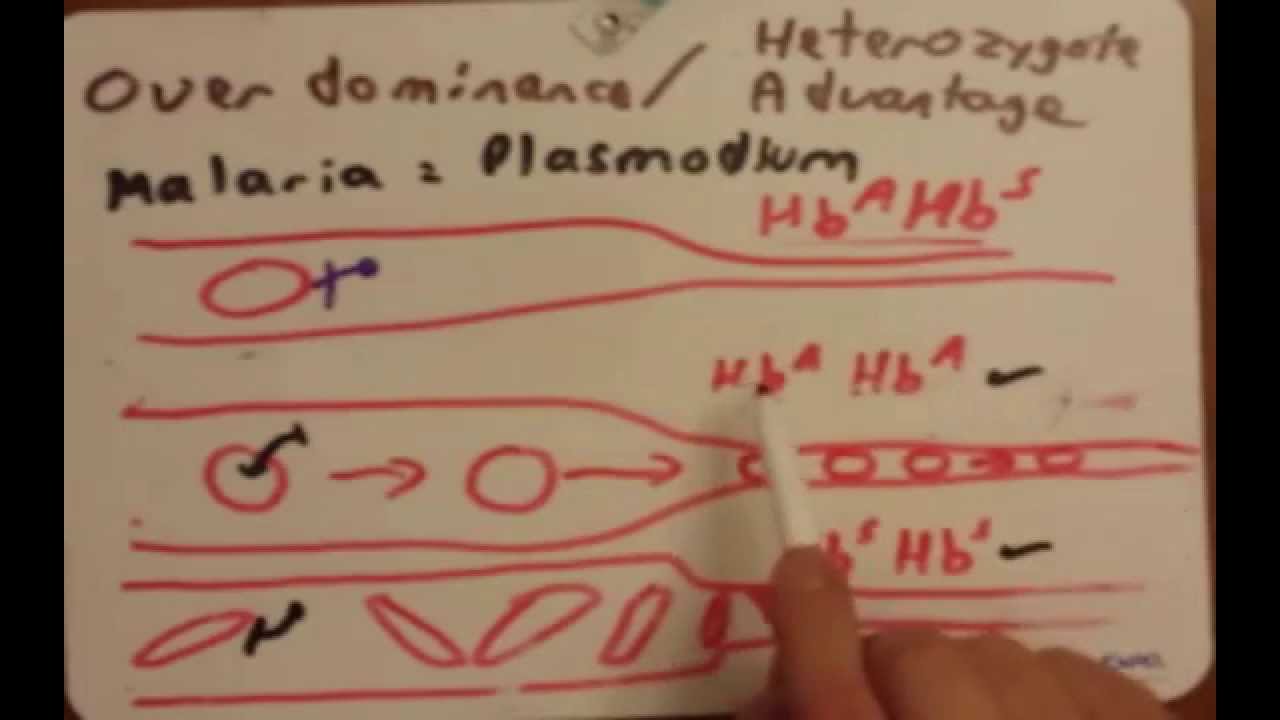 Over dominance/ Heterozygote Advantage
Malaria = Plasmodium
Hb^A Hb^S
Hb^A Hb^A ✓
b^s Hb^s ✓